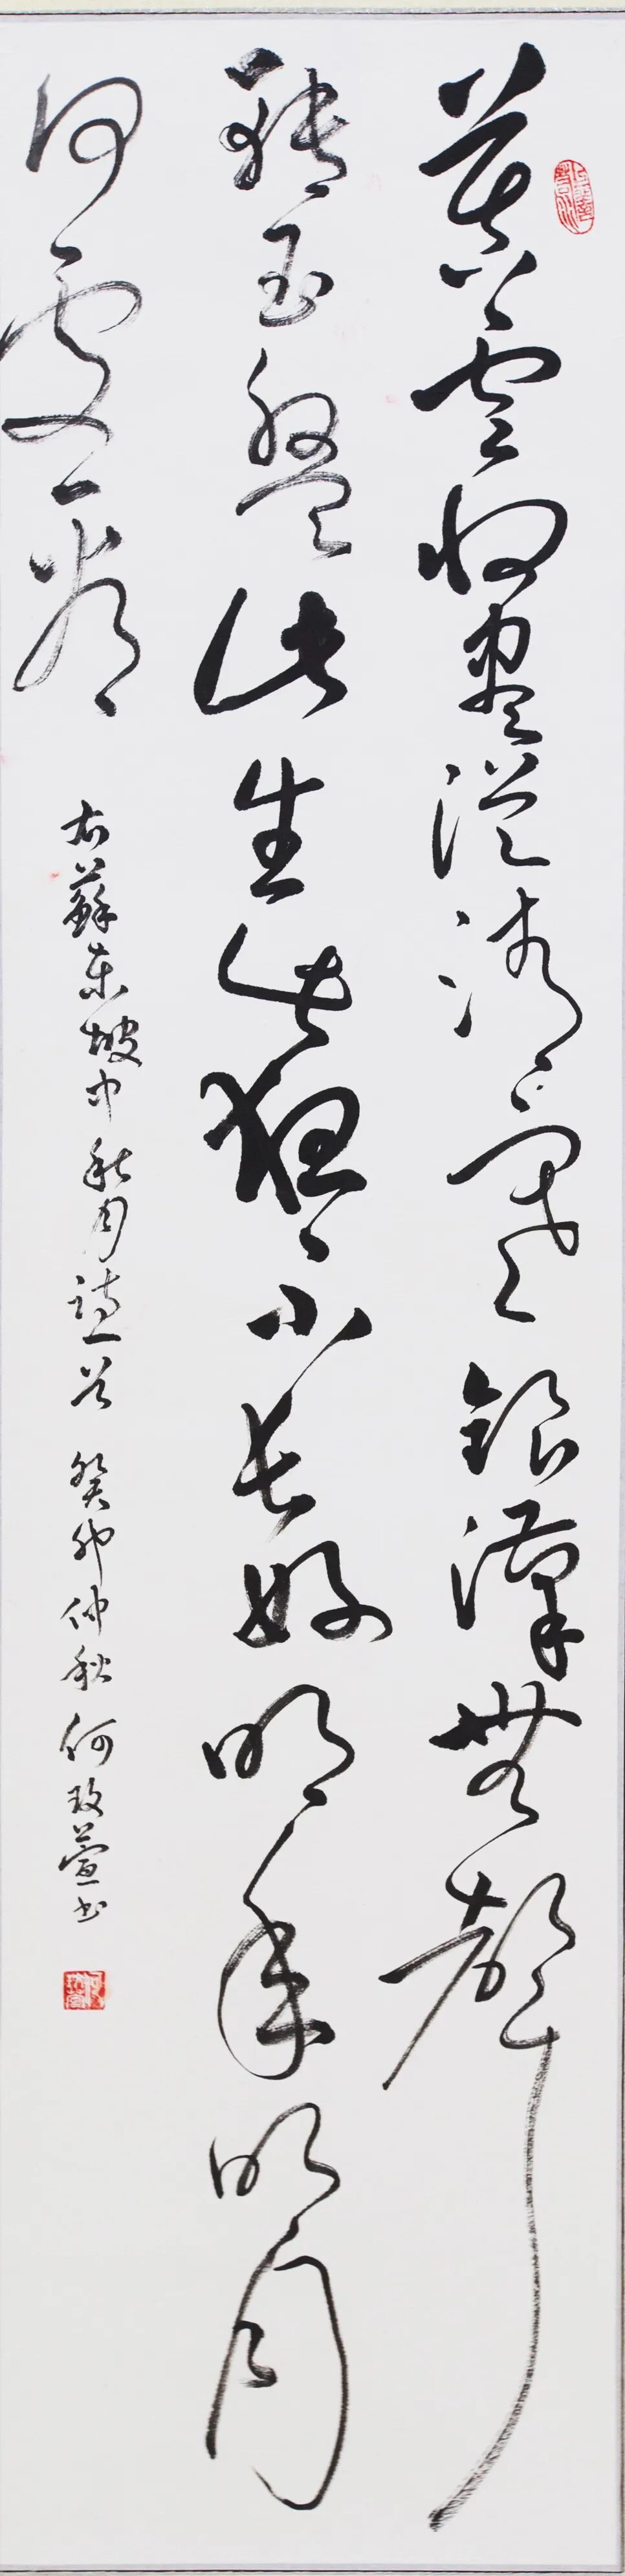 暮雲收盡溢清寒銀漢無聲
轉玉盤此生此夜不長好明年明月
何處看
右蘇東坡中秋月詩一首 癸卯仲秋 何玫萱書